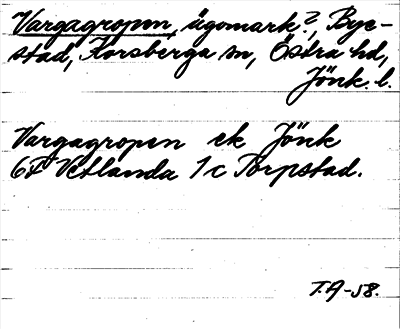 Vargagropen, ägomark?, Bye-
stad, Korsberga sn, Östra hd,
Jönk. l.
Vargagropen ek Jönk
6F Vetlanda 1c Torpstad.
T.A-58.